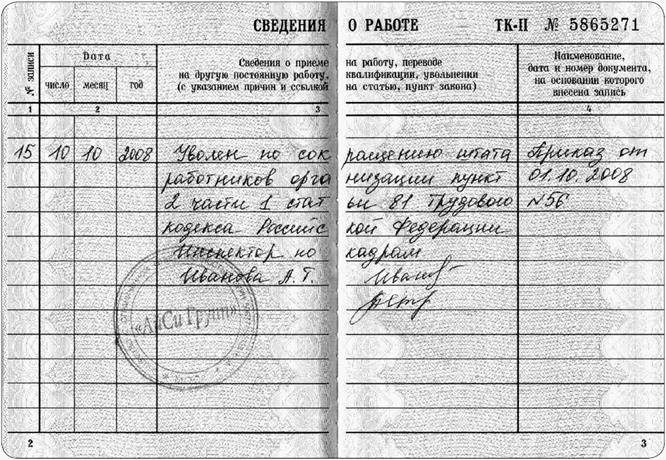 СВЕДЕНИЯ О РАБОТЕ ТК-II № 5865271
№ записи
Дата
Сведения о приеме на работу, переводе
на другую постоянную работу, квалификации, увольнении
(с указанием причин и ссылкой на статью, пункт закона)
Наименование,
дата и номер документа,
на основании которого
внесена запись
число месяц год
1 2 3 4
15 10 10 2008 Уволен по сокращению штата Приказ от
работников организации пункт 01.10.2008
2 части 1 статьи 81 Трудового №56
кодекса Российской Федерации
Инспектор по кадрам
Иванова А.Т. Иванов
Петр
«АйСи Групп»
2 3